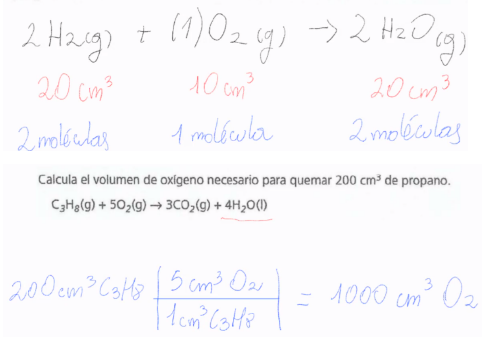 2H2(g) + (1)O2(g) → 2H2O(g)
20 cm³ 10 cm³ 20 cm³
2 moléculas 1 molécula 2 moléculas
Calcula el volumen de oxígeno necesario para quemar 200 cm³ de propano.
C₃H₈(g) + 5O₂(g) → 3CO₂(g) + 4H₂O(l)
200 cm³ C3H8 | 5 cm³ O2 / 1 cm³ C3H8 | = 1000 cm³ O2